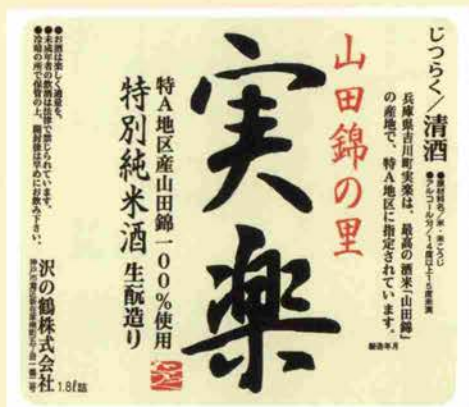 じつらく／清酒
●原材料名／米・米こうじ
●アルコール分／14度以上15度未満
兵庫県吉川町実楽は、最高の酒米「山田錦」
の産地で、特A地区に指定されています。
製造年月
山田錦の里
実楽
特A地区産山田錦一〇〇％使用
特別純米酒 生酛造り
●お酒は楽しく適量を。
●未成年者の飲酒は法律で禁じられています。
●冷暗の所で保管の上、開封後は早めにお飲み下さい。
沢の鶴株式会社
神戸市灘区新在家南町五丁目一番二号
1.8ℓ詰